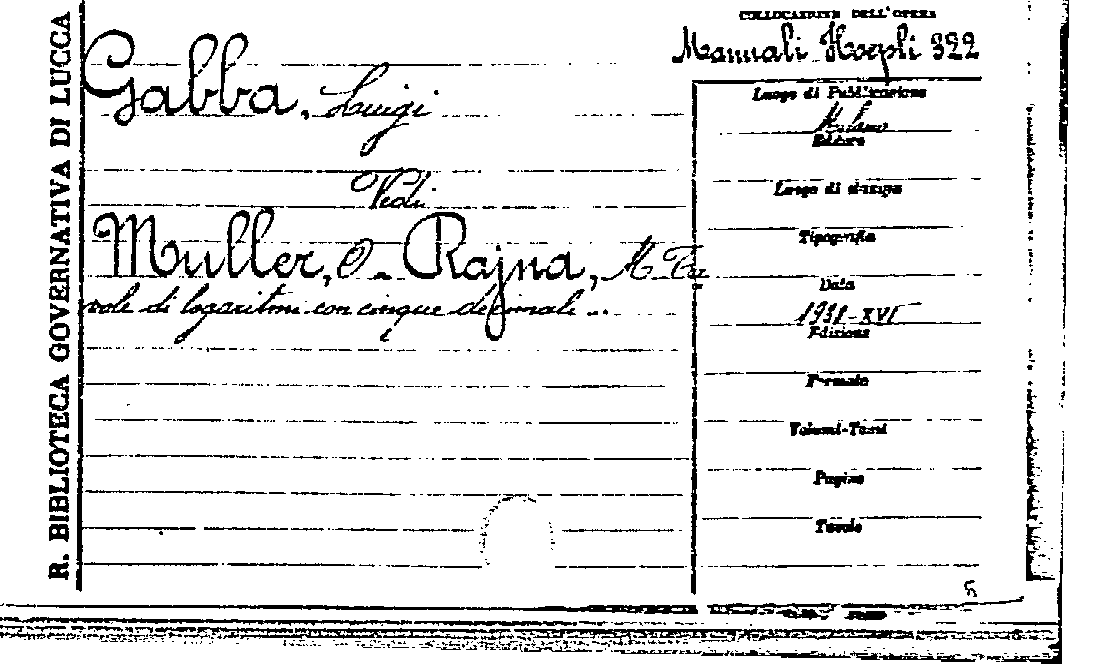 R. BIBLIOTECA GOVERNATIVA DI LUCCA
COLLOCAZIONE DELL'OPERA
Manuali Hoepli 322
Gabba, Luigi
Vedi
Muller, O. Rajna, M. Ta
vole di logaritmi con cinque decimali ...
Luogo di Pubblicazione
Milano
Editore
Luogo di stampa
Tipografia
Data
1931-XVI
Edizione
Formato
Volumi-Tomi
Pagine
Tavole
5